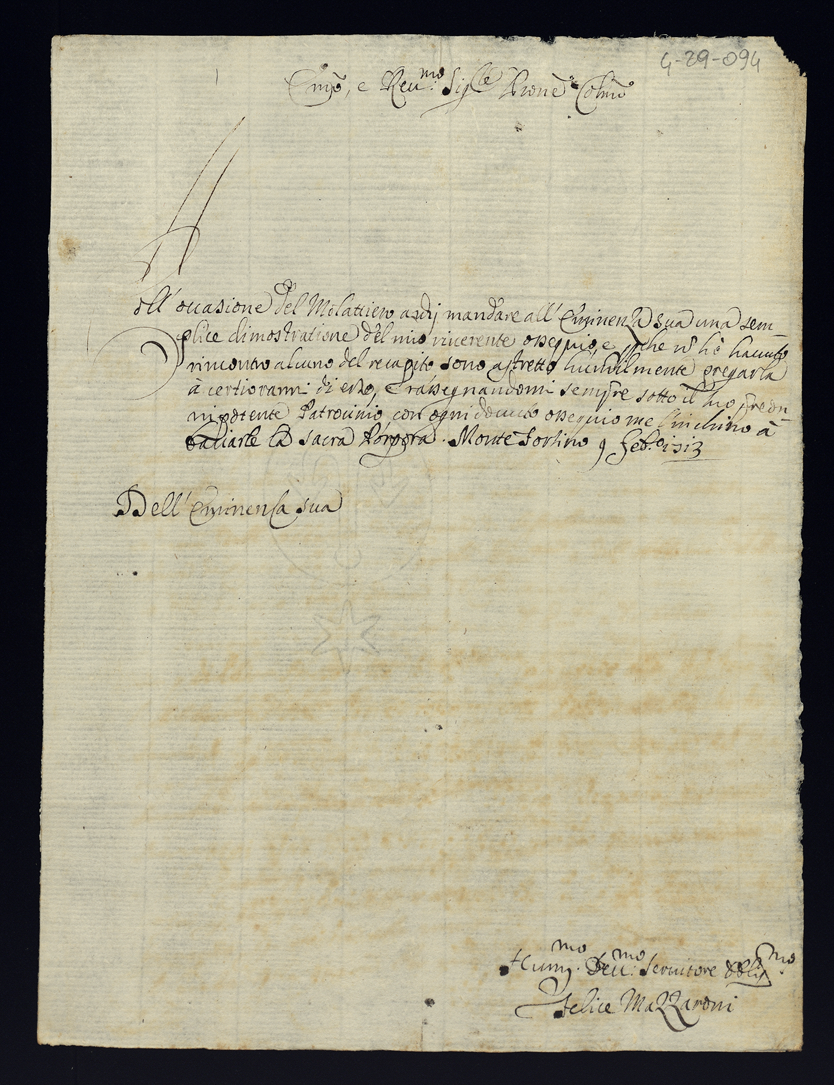 4-29-094
Emo, e Reu.mo Sig.re Prone Colmo
Coll' occasione del Molattiero ardij mandare all' Eminenza sua una sem-
plice dimostratione del mio riverente ossequio e perche no hò havuto
rincontro alcuno del recapito sono astretto humilmente pregarla
à certiorarmi di esso, e rassegnandomi sempre sotto il suo
Patrocinio con ogni douuto ossequio me l'inchino à
baciarle la sacra Porpora. Monte Fortino 9 Feb.o
Dell' Eminenza sua
Hum.mo Deu.mo Seruitore Oblig.mo
Felice Mazzaroni